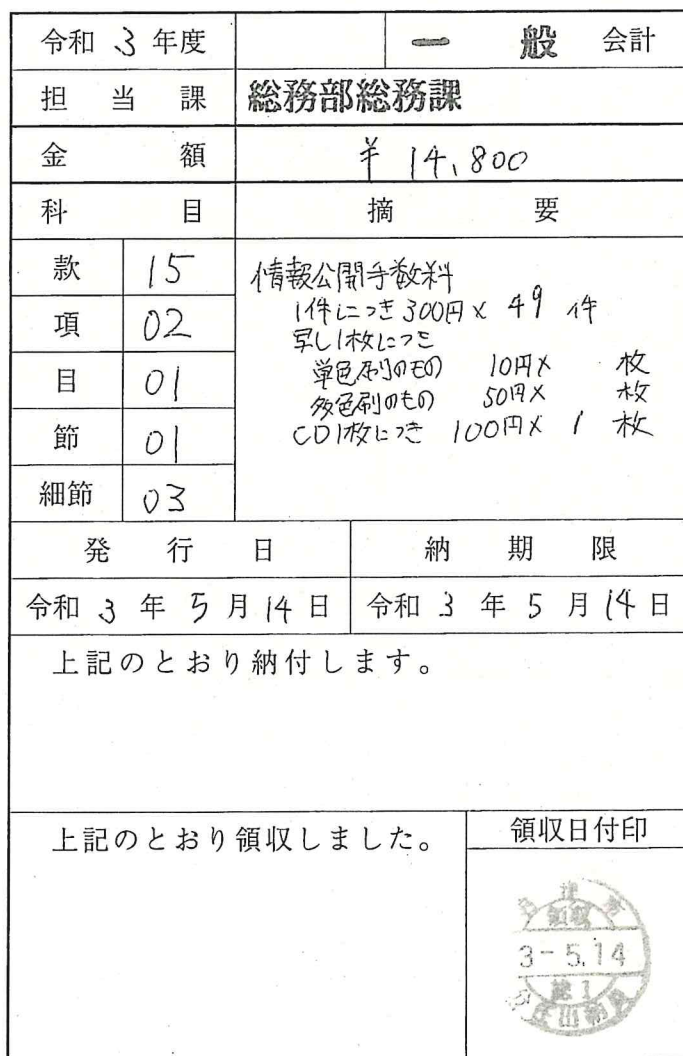 令和 3 年度 一般 会計
担当課 総務部総務課
金額 ¥ 14,800
科目 摘要
款 15
項 02
目 01
節 01
細節 03
情報公開手数料
1件につき300円×49件
写し1枚につき
単色刷のもの 10円× 枚
多色刷のもの 50円× 枚
CD1枚につき 100円×1枚
発行日 納期限
令和 3 年 5 月 14 日 令和 3 年 5 月 14 日
上記のとおり納付します。
上記のとおり領収しました。 領収日付印
領収
3-5.14